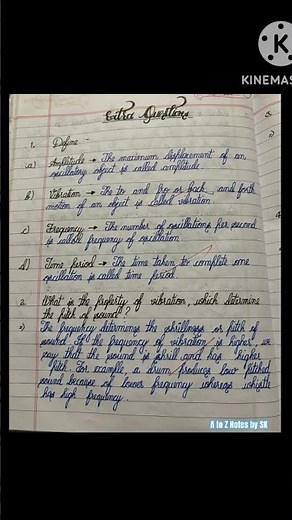 KINEMAS
Extra Questions
1. Define :-
a) Amplitude → The maximum displacement of an
oscillatory object is called amplitude.
b) Vibration → The to and fro or back and forth
motion of an object is called vibration.
c) Frequency → The number of oscillations per second
is called frequency of oscillation.
d) Time period → The time taken to complete one
oscillation is called time period.
2. What is the property of vibration, which determine
the pitch of sound?
The frequency determines the shrillness or pitch of
sound. If the frequency of vibration is higher, we
say that the sound is shrill and has higher
Pitch. For example, a drum produces low pitched
sound because of lower frequency whereas whistle
has high frequency.
A to Z Notes by SK